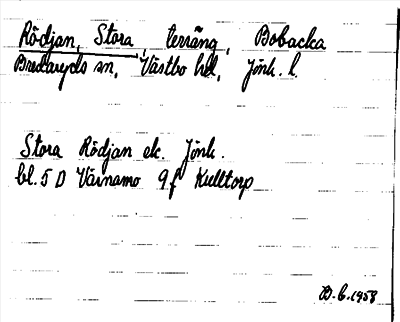 Rödjan, Stora, terräng, Bobacka
Bredaryds sn, Västbo hd, Jönk. l.
Stora Rödjan ek. Jönk.
bl. 5 D Värnamo 9f Kulltorp
B. C. 1958